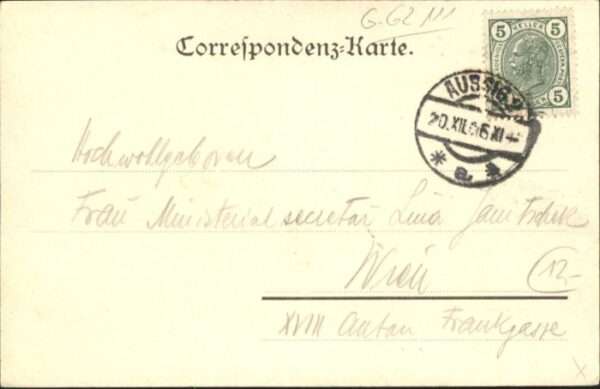 G-G2 111
Correspondenz-Karte.
5 HELLER 5
5 5
AUSSIG
20.XII.06 XI
* a. *
Hochwohlgeboren
Frau Ministerialsecretär Lina
Wien
12-
XVIII Anton Frankgasse
x